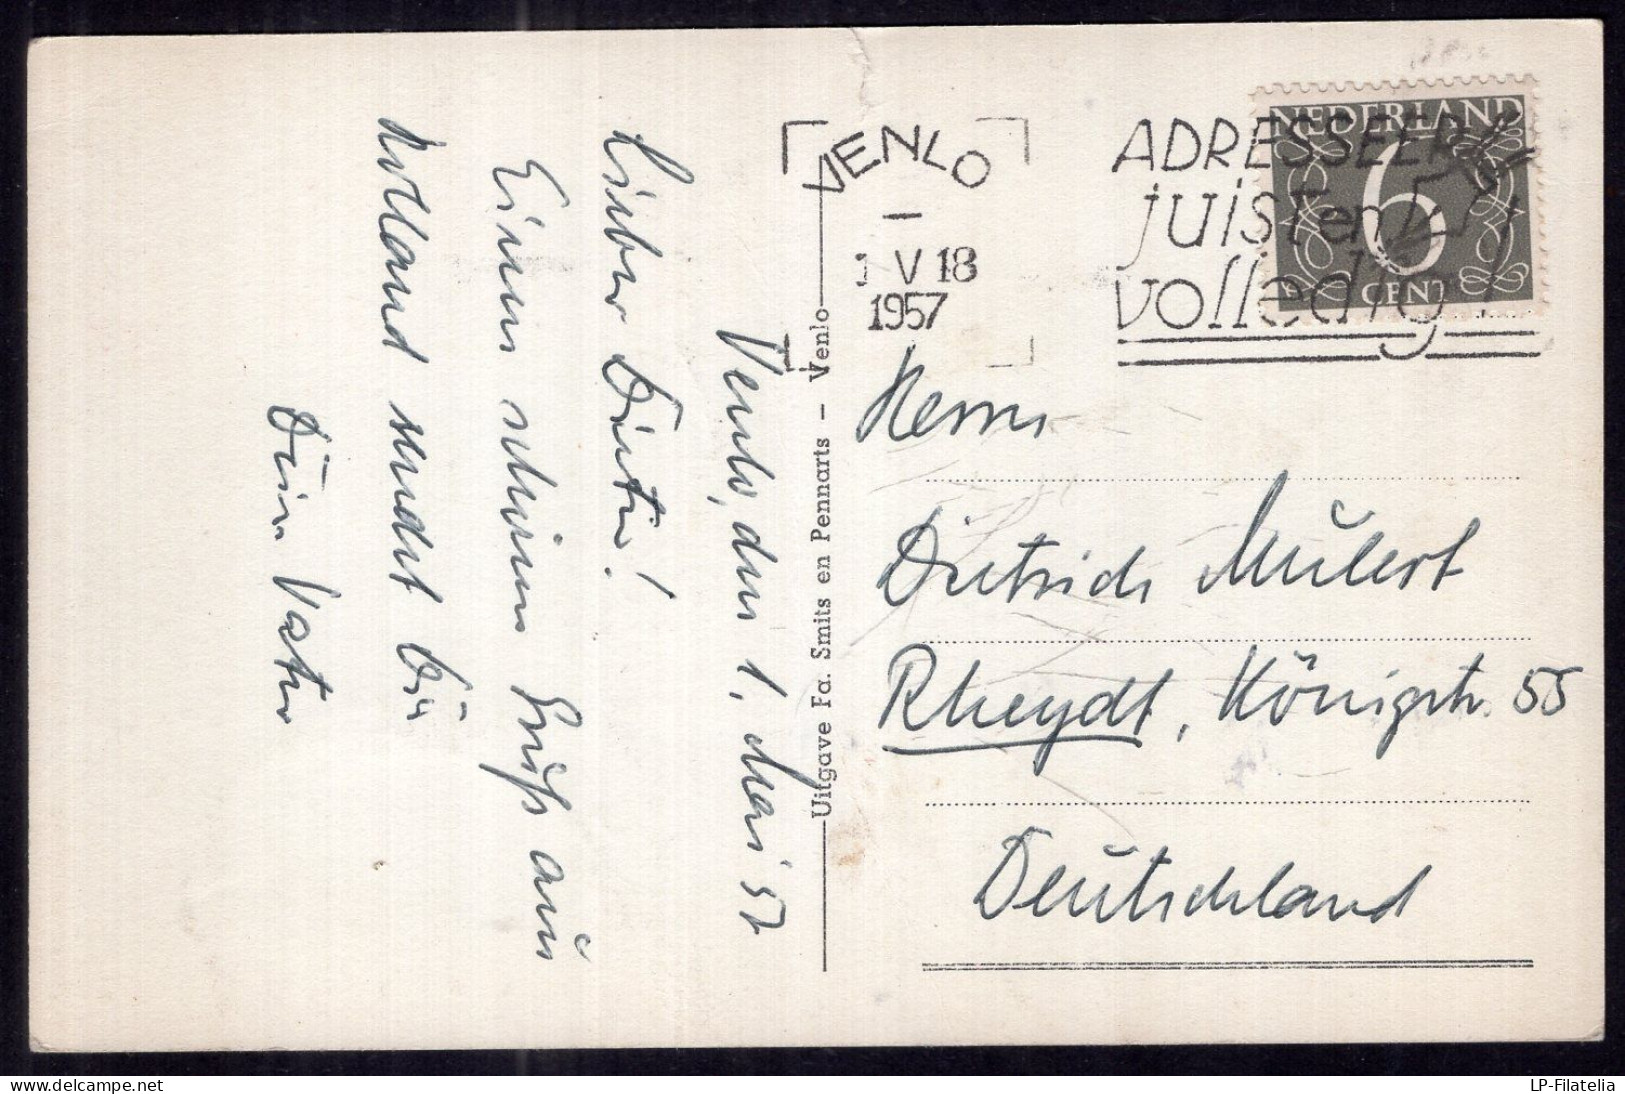 Venlo, den 1. Mai 57
Lieber Dieter!
Einen schönen Gruß aus
Holland sendet Dir
Dein Vater
Uitgave Fa. Smits en Pennarts – Venlo
VENLO
V 18
1957
ADRESSEER
juist en
volledig
NEDERLAND
6
CENT
Herrn
Dietrich Mülert
Rheydt, Königstr. 55
Deutschland
LP-Filatelia